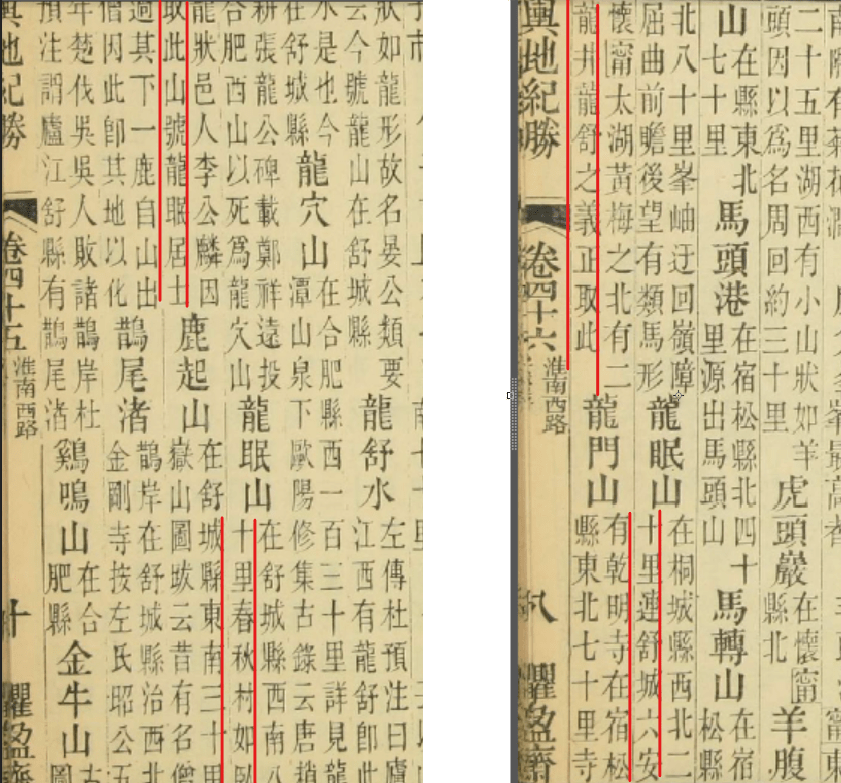 狀如龍形故名晏公類要
云今號龍山在舒城縣
龍舒水
左傳杜預注曰廬
江西有龍舒卽此
水是也今
在舒城縣
龍穴山
在合肥縣西一百三十里詳見龍
潭山泉下歐陽修集古錄云唐趙
耕張龍公碑載鄭祥遠投
合肥西山以死爲龍穴山
龍眠山
在舒城縣西南八
十里春秋村如臥
龍狀邑人李公麟因
取此山號龍眠居士
鹿起山
在舒城縣東南三十里
嶽山圖跋云昔有名僧
過其下一鹿自山出
僧因此卽其地以化
鵲尾渚
鵲岸在舒城縣治西北
金剛寺按左氏昭公五
年楚伐吳吳人敗諸鵲岸杜
預注謂廬江舒縣有鵲尾渚
鷄鳴山
在合
肥縣
金牛山
古
圖
輿地紀勝
卷四十五
淮南西路
十
懼盈齋
二十五里湖西有小山狀如羊
頭因以爲名周回約三十里
虎頭巖
在懷甯
縣北
羊腹
山
在縣東北
七十里
馬頭港
在宿松縣北四十
里源出馬頭山
馬轉山
在宿
松縣
北八十里峯岫迂回嶺障
屈曲前瞻後望有類馬形
龍眠山
在桐城縣西北二
十里連舒城六安
懷甯太湖黃梅之北有二
龍井龍舒之義正取此
龍門山
有乾明寺在宿松
縣東北七十里寺
輿地紀勝
卷四十六
淮南西路
八
懼盈齋